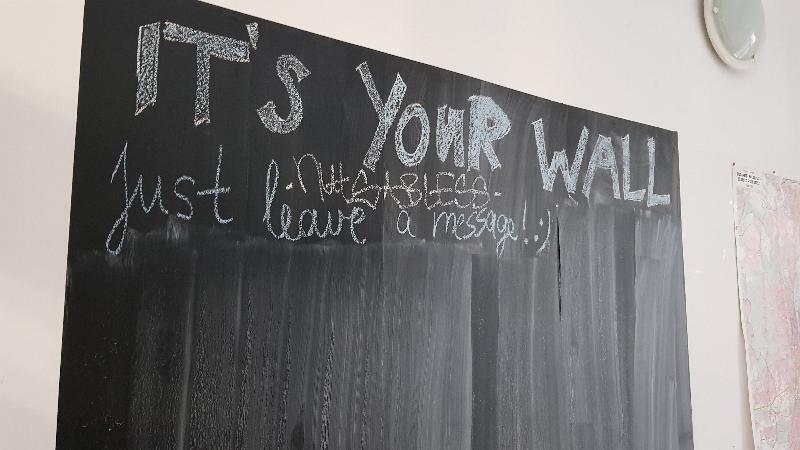 IT's YOUR WALL
Just leave a message! :)